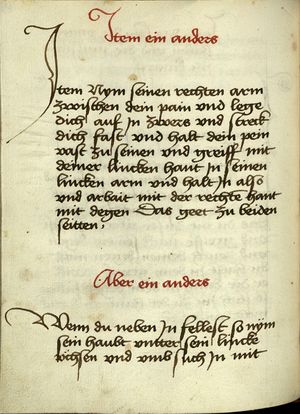 Item ein anders
Item Nym seinen rechten arm
zwischen dein pain und lege
dich auf In zwers und streck
dich fast und halt dein pein
vast zu seinen und greiff mit
deiner lincken hant in seinen
lincken arm und halt In also
und arbait mit der rechte hant
mit degen Das geet zu beiden
seitten
Aber ein anders
Wenn du neben In fellest so nym
sein haubt untter sein lincke
vchsen und umb such In mit